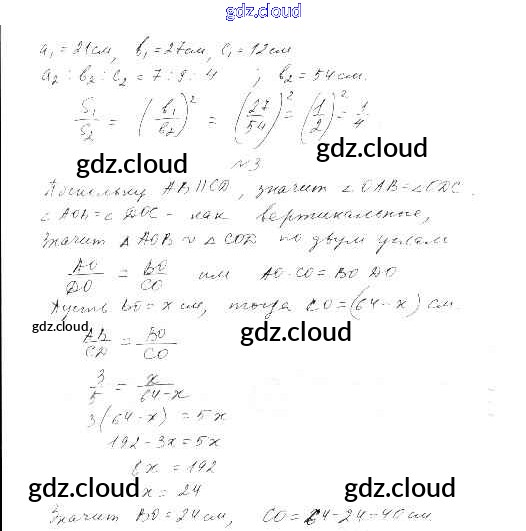 gdz.cloud
a₁ = 21см, b₁ = 27см, c₁ = 12см
a₂ : b₂ : c₂ = 7 : 9 : 4 ; b₂ = 54см.
S₁/S₂ = (b₁/b₂)² = (27/54)² = (1/2)² = 1/4
gdz.cloud
№3
Поскольку AB || CD, значит ∠OAB = ∠CDC.
∠AOB = ∠DOC - как вертикальные,
Значит △AOB ∾ △COD по двум углам
AO/DO = BO/CO или AO·CO = BO DO
Пусть BO = x см, тогда CO = (64-x) см.
gdz.cloud
gdz.cloud
AB/CD = BO/CO
3/5 = x/64-x
3(64-x) = 5x
192-3x = 5x
8x = 192
gdz.cloud gdz.cloud
x = 24
Значит BO = 24см, CO = 64-24=40см.